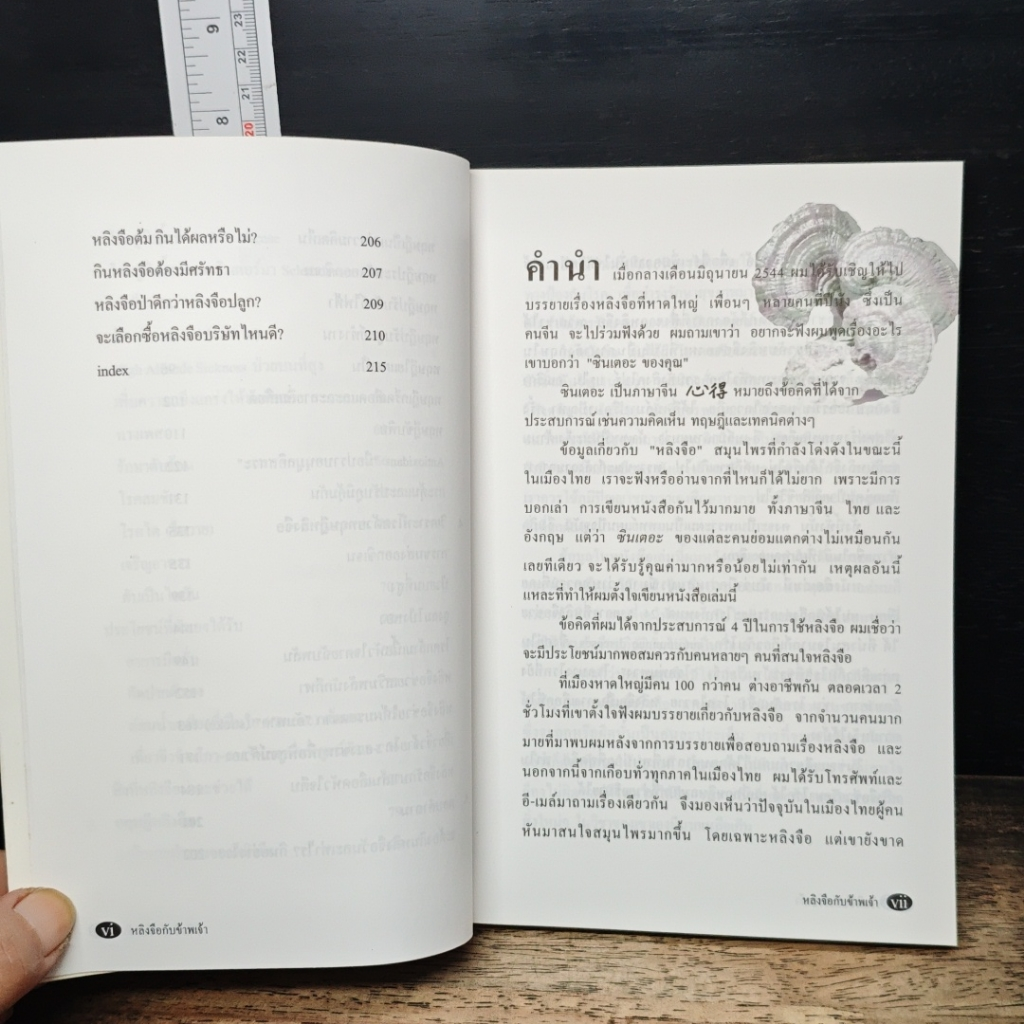 9
23
22
21
8
20
หลิงจือต้ม กินได้ผลหรือไม่? 206
กินหลิงจือต้องมีศรัทธา 207
หลิงจือป่าดีกว่าหลิงจือปลูก? 209
จะเลือกซื้อหลิงจือบริษัทไหนดี? 210
index 215
vi หลิงจือกับข้าพเจ้า
คำนำ เมื่อกลางเดือนมิถุนายน 2544 ผมได้รับเชิญให้ไป
บรรยายเรื่องหลิงจือที่หาดใหญ่ เพื่อนๆ หลายคนที่ปีนัง ซึ่งเป็น
คนจีน จะไปร่วมฟังด้วย ผมถามเขาว่า อยากจะฟังผมพูดเรื่องอะไร
เขาบอกว่า "ซินเตอะ ของคุณ"
ซินเตอะ เป็นภาษาจีน 心得 หมายถึงข้อคิดที่ได้จาก
ประสบการณ์ เช่นความคิดเห็น ทฤษฎีและเทคนิคต่างๆ
ข้อมูลเกี่ยวกับ "หลิงจือ" สมุนไพรที่กำลังโด่งดังในขณะนี้
ในเมืองไทย เราจะฟังหรืออ่านจากที่ไหนก็ได้ไม่ยาก เพราะมีการ
บอกเล่า การเขียนหนังสือกันไว้มากมาย ทั้งภาษาจีน ไทย และ
อังกฤษ แต่ว่า ซินเตอะ ของแต่ละคนย่อมแตกต่างไม่เหมือนกัน
เลยทีเดียว จะได้รับรู้คุณค่ามากหรือน้อยไม่เท่ากัน เหตุผลอันนี้
แหละที่ทำให้ผมตั้งใจเขียนหนังสือเล่มนี้
ข้อคิดที่ผมได้จากประสบการณ์ 4 ปีในการใช้หลิงจือ ผมเชื่อว่า
จะมีประโยชน์มากพอสมควรกับคนหลายๆ คนที่สนใจหลิงจือ
ที่เมืองหาดใหญ่มีคน 100 กว่าคน ต่างอาชีพกัน ตลอดเวลา 2
ชั่วโมงที่เขาตั้งใจฟังผมบรรยายเกี่ยวกับหลิงจือ จากจำนวนคนมาก
มายที่มาพบผมหลังจากการบรรยายเพื่อสอบถามเรื่องหลิงจือ และ
นอกจากนี้จากเกือบทั่วทุกภาคในเมืองไทย ผมได้รับโทรศัพท์และ
อี-เมล์มาถามเรื่องเดียวกัน จึงมองเห็นว่าปัจจุบันในเมืองไทยผู้คน
หันมาสนใจสมุนไพรมากขึ้น โดยเฉพาะหลิงจือ แต่เขายังขาด
หลิงจือกับข้าพเจ้า vii